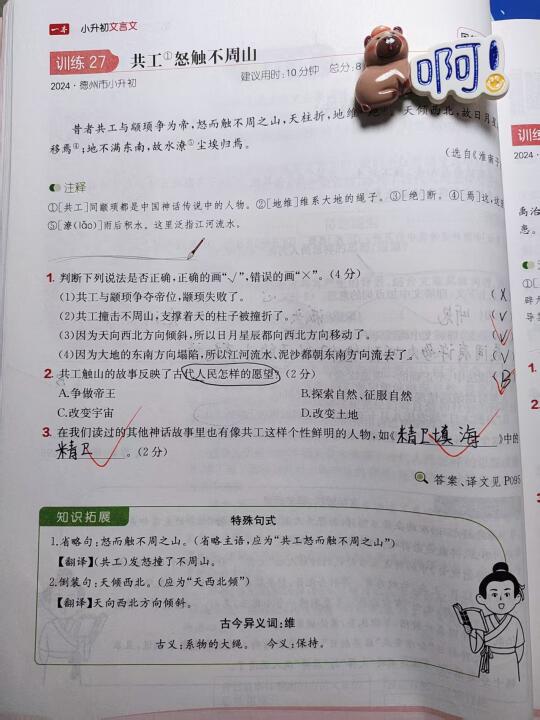 一本 小升初文言文
训练27 共工①怒触不周山
2024·德州市小升初 建议用时:10分钟 总分:8
啊!
昔者共工与颛顼争为帝,怒而触不周之山,天柱折,地维 天倾西北,故日月
移焉④;地不满东南,故水潦⑤尘埃归焉。
(选自《淮南子
注释
①[共工]同颛顼都是中国神话传说中的人物。②[地维]维系大地的绳子。③[绝]断。④[焉]这,
⑤[潦(lǎo)]雨后积水。这里泛指江河流水。
1. 判断下列说法是否正确,正确的画“√”,错误的画“×”。(4分)
(1)共工与颛顼争夺帝位,颛顼失败了。 ( X
(2)共工撞击不周山,支撑着天的柱子被撞折了。 ( √
(3)因为天向西北方向倾斜,所以日月星辰都向西北方向移动了。 ( √
(4)因为大地的东南方向塌陷,所以江河流水、泥沙都朝东南方向流去了。 ( √
2. 共工触山的故事反映了古代人民怎样的愿望?(2分) ( B
A.争做帝王 B.探索自然、征服自然
C.改变宇宙 D.改变土地
3. 在我们读过的其他神话故事里也有像共工这样个性鲜明的人物,如《精卫填海》中的
精卫。(2分)
答案、译文见P095
知识拓展
特殊句式
1.省略句:怒而触不周之山。(省略主语,应为“共工怒而触不周之山”)
【翻译】(共工)发怒撞了不周山。
2.倒装句:天倾西北。(应为“天西北倾”)
【翻译】天向西北方向倾斜。
古今异义词:维
古义:系物的大绳。 今义:保持。
训练
2024·
禹治
患。